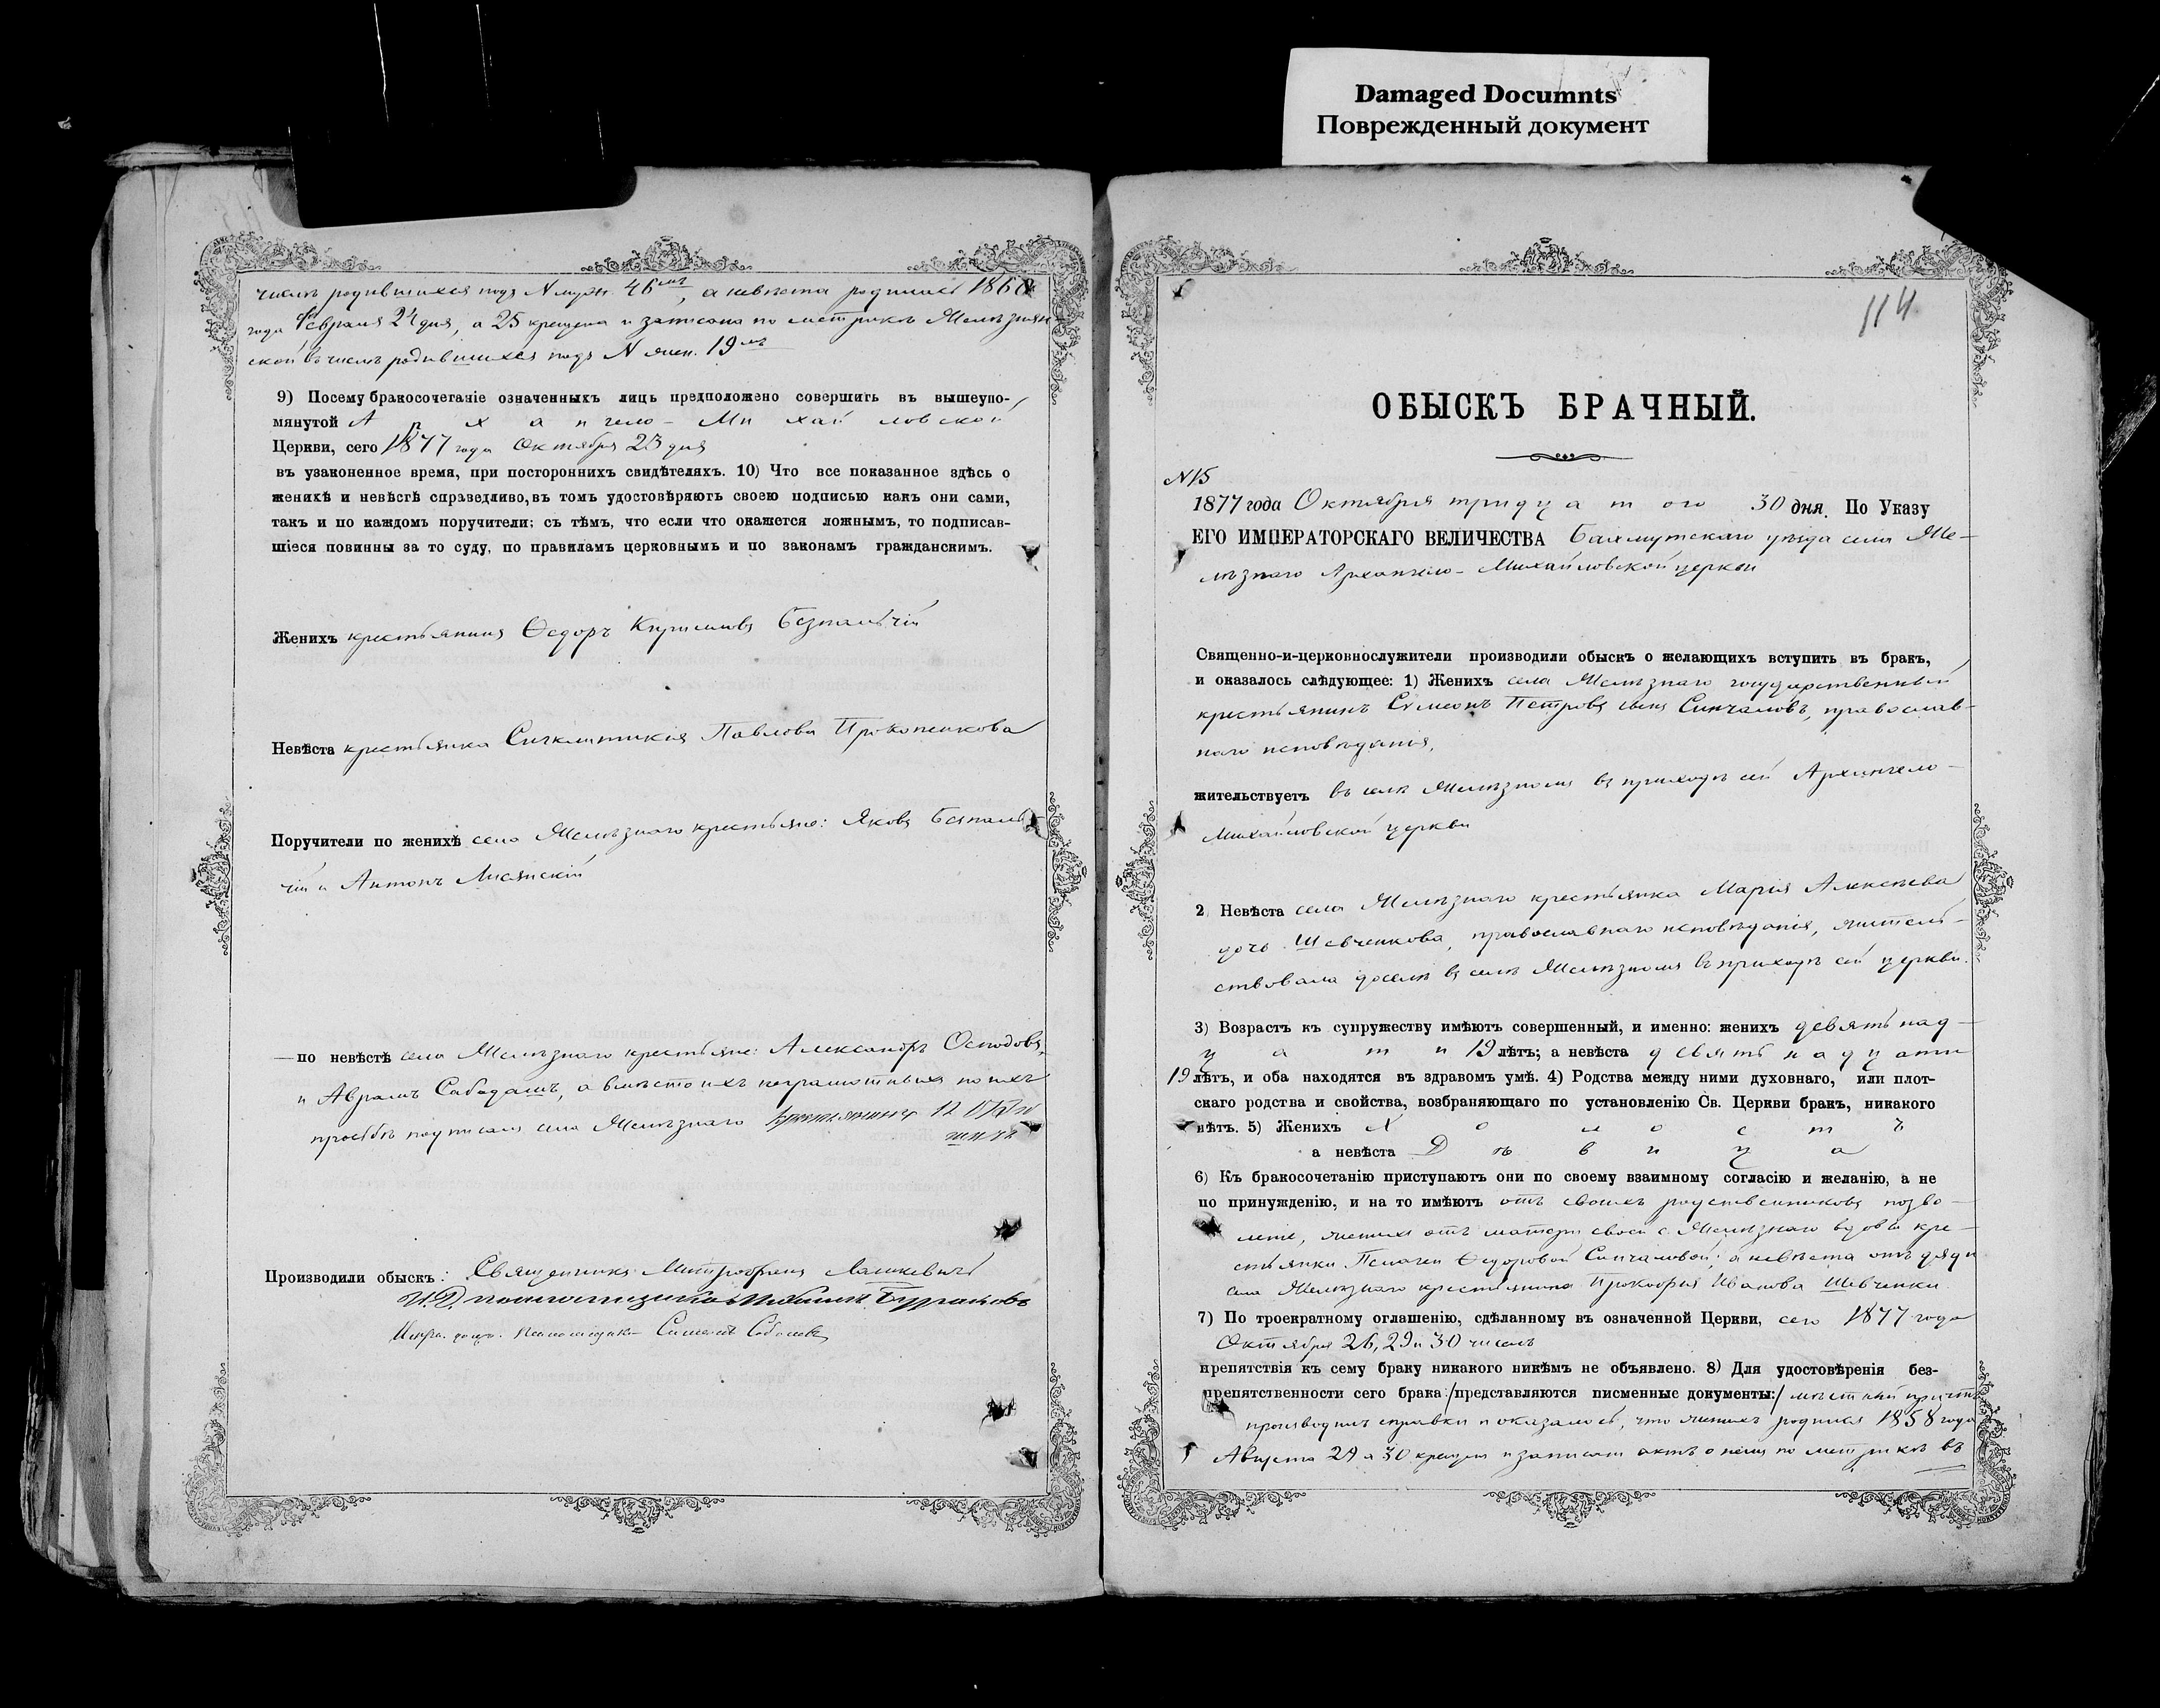 Damaged Documnts
Поврежденный документ
числѣ родившихся подъ N муж. 46мъ, а невѣста родилась 1860
года Февраля 24 дня, а 25 крещена и записана по метрикѣ Желѣзнян-
ской въ числѣ родившихся подъ N жен. 19мъ
9) Посему бракосочетаніе означенныхъ лицъ предположено совершить въ вышеупо-
мянутой Архангело-Михайловской
Церкви, сего 1877 года Октября 23 дня
въ узаконенное время, при постороннихъ свидѣтеляхъ. 10) Что все показанное здѣсь о
женихѣ и невѣстѣ справедливо, въ томъ удостовѣряютъ своею подписью какъ они сами,
такъ и по каждомъ поручители; съ тѣмъ, что если что окажется ложнымъ, то подписав-
шіеся повинны за то суду, по правиламъ церковнымъ и по законамъ гражданскимъ.
Женихъ крестьянинъ Ѳедоръ Кириловъ Безпальчій
Невѣста крестьянка Синклитикія Павлова Прокопенкова
Поручители по женихѣ села Желѣзнаго крестьяне: Яковъ Безпаль-
чій и Антонъ Лисянскій
— по невѣстѣ села Желѣзнаго крестьяне: Александръ Осподовъ
и Аврамъ Сабадашъ, а вмѣсто ихъ неграмотныхъ по ихъ
просьбѣ подписалъ села Желѣзнаго
Производили обыскъ: Священникъ Митрофанъ Лашкевичъ
И. Д. псаломщика
Испр. долж. псаломщика Симеонъ
114
ОБЫСКЪ БРАЧНЫЙ.
N 15
1877 года Октября тридцатого 30 дня. По Указу
ЕГО ИМПЕРАТОРСКАГО ВЕЛИЧЕСТВА Бахмутскаго уѣзда села Же-
лѣзнаго Архангело-Михайловской церкви
Священно-и-церковнослужители производили обыскъ о желающихъ вступить въ бракъ,
и оказалось слѣдующее: 1) Женихъ села Желѣзнаго государственный
крестьянинъ Сѵмеонъ Петровъ сынъ Сипчаловъ, православ-
наго исповѣданія,
жительствуетъ въ селѣ Желѣзномъ въ приходѣ сей Архангело-
Михайловской церкви
2 Невѣста села Желѣзнаго крестьянка Марія Алексѣева
дочь Шевченкова, православнаго исповѣданія, житель-
ствовала доселѣ въ селѣ Желѣзномъ въ приходѣ сей церкви.
3) Возрастъ къ супружеству имѣютъ совершенный, и именно: женихъ девятьнад-
цати 19 лѣтъ; а невѣста девятьнадцати
19 лѣтъ, и оба находятся въ здравомъ умѣ. 4) Родства между ними духовнаго, или плот-
скаго родства и свойства, возбраняющаго по установленію Св. Церкви бракъ, никакого
нѣтъ. 5) Женихъ Холостъ
а невѣста Дѣвица
6) Къ бракосочетанію приступаютъ они по своему взаимному согласію и желанію, а не
по принужденію, и на то имѣютъ отъ своихъ родственниковъ позво-
леніе, женихъ отъ матери своей с. Желѣзнаго вдовы кре-
стьянки Пелагеи Ѳедоровой Сипчаловой; а невѣста отъ дяди
села Желѣзнаго крестьянина Прокофія Иванова Шевченки
7) По троекратному оглашенію, сдѣланному въ означенной Церкви, сего 1877 года
Октября 26, 29 и 30 числъ
препятствія къ сему браку никакого никѣмъ не объявлено. 8) Для удостовѣренія без-
препятственности сего брака: /представляются писменные документы:/ мѣстный причтъ
производилъ справки и оказалось, что женихъ родился 1858 года
Августа 29 а 30 крещенъ и записанъ актъ о немъ по метрикѣ въ